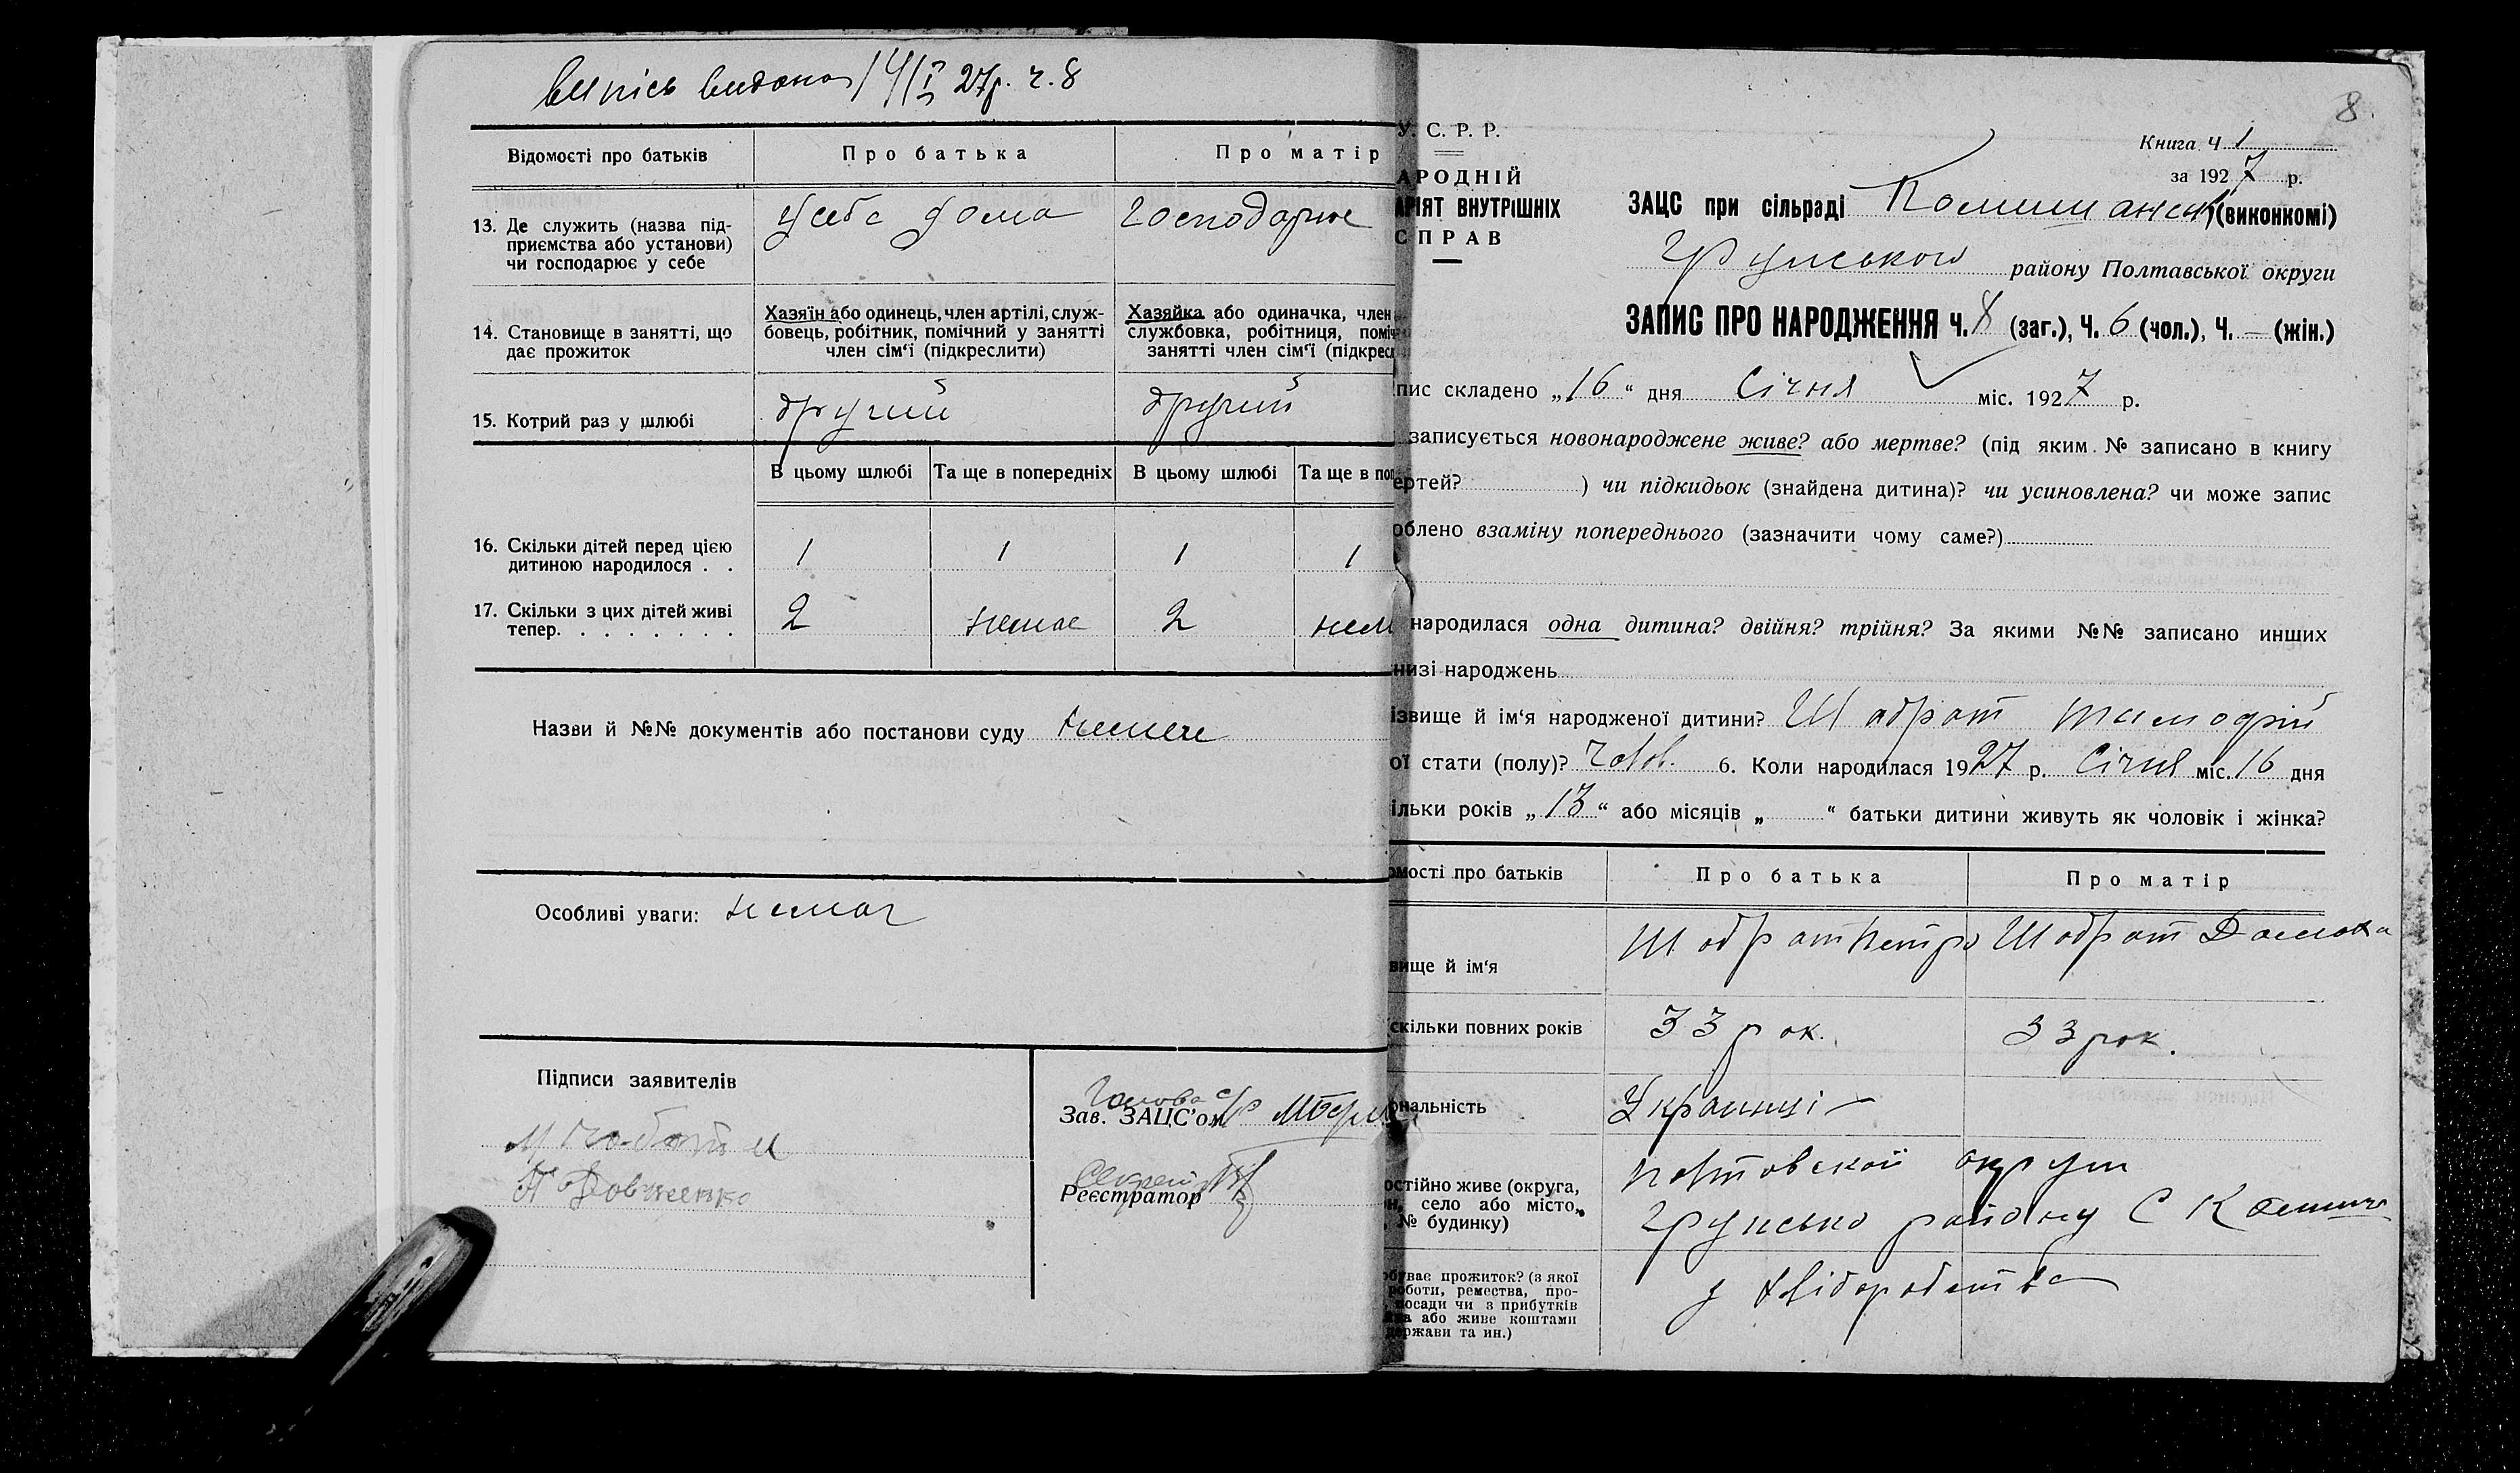 випись видана 14/I 27р. ч. 8
Відомості про батьків
Про батька
Про матір
13. Де служить (назва під-
приємства або установи)
чи господарює у себе
у себе дома
господарює
14. Становище в занятті, що
дає прожиток
Хазяїн або одинець, член артілі, служ-
бовець, робітник, помічний у занятті
член сім'ї (підкреслити)
Хазяйка або одиначка, член
службовка, робітниця, поміч
занятті член сім'ї (підкресл
15. Котрий раз у шлюбі
другий
другий
В цьому шлюбі
Та ще в попередніх
В цьому шлюбі
Та ще в поп
16. Скільки дітей перед цією
дитиною народилося . .
1
1
1
1
17. Скільки з цих дітей живі
тепер. . . . . . . .
2
немає
2
нем
Назви й №№ документів або постанови суду немає
Особливі уваги: немає
Підписи заявителів
Довженко
Голова с/р
Зав. ЗАЦС'ом
Секрет
Реєстратор
8.
У. С. Р. Р.
АРОДНІЙ
АРІЯТ ВНУТРІШНІХ
СПРАВ
Книга Ч 1
за 1927 р.
ЗАЦС при сільраді (виконкомі)
Грунському району Полтавської округи
ЗАПИС ПРО НАРОДЖЕННЯ Ч. 8 (заг.), Ч. 6 (чол.), Ч. — (жін.)
пис складено „16“ дня Січня міс. 1927 р.
записується новонароджене живе? або мертве? (під яким № записано в книгу
ертей? ) чи підкидьок (знайдена дитина)? чи усиновлена? чи може запис
облено взаміну попереднього (зазначити чому саме?)
народилася одна дитина? двійня? трійня? За якими №№ записано инших
низі народжень
ізвище й ім'я народженої дитини? Шабрат Тимофій
ої стати (полу)? Чолов. 6. Коли народилася 1927 р. Січня міс. 16 дня
ільки років „13“ або місяців „ “ батьки дитини живуть як чоловік і жінка?
омості про батьків
Про батька
Про матір
вище й ім'я
Шабрат Петро
Шабрат Домаха
скільки повних років
33 рок.
33 рок.
ональність
Українці —
остійно живе (округа,
н, село або місто,
№ будинку)
Полтовской округи
Грунсько району С
обуває прожиток? (з якої
роботи, ремества, про-
посади чи з прибутків
або живе коштами
держави та ин.)
з хліборобства